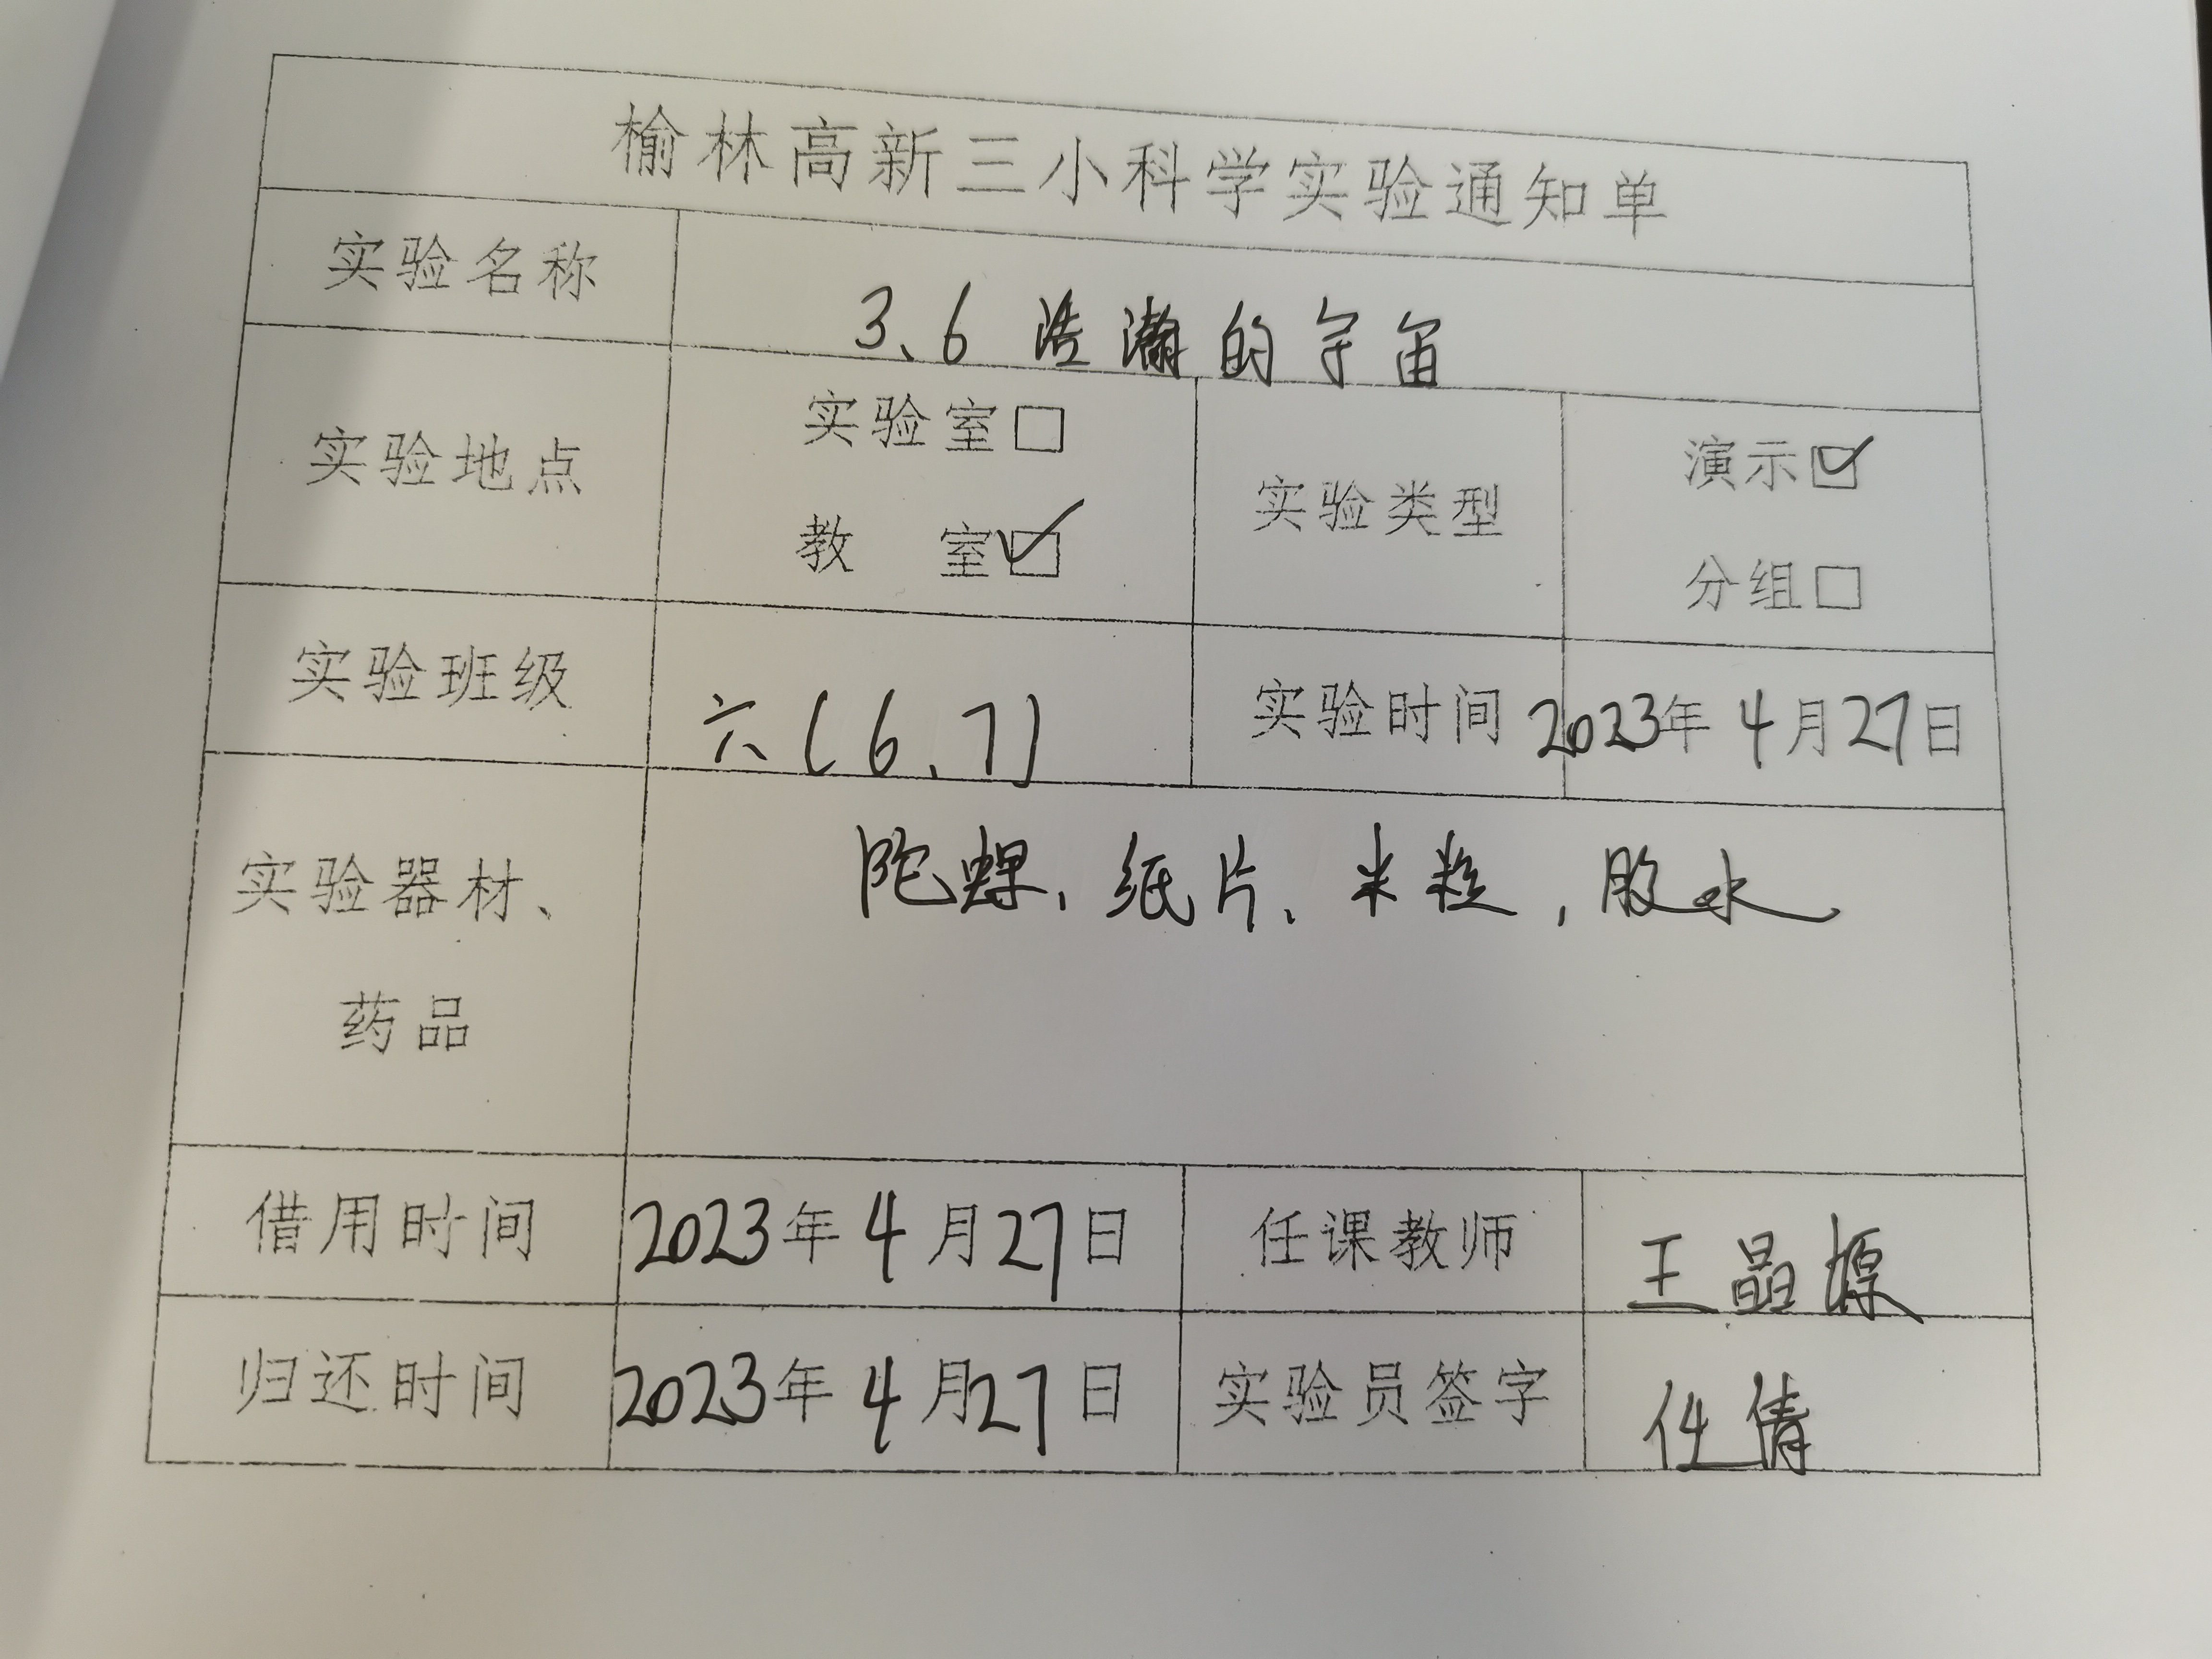 榆林高新三小科学实验通知单
实验名称 3、6 浩瀚的宇宙
实验地点 实验室□ 教 室☑ 实验类型 演示☑ 分组□
实验班级 六(6、7) 实验时间 2023年4月27日
实验器材、药品 陀螺、纸片、米粒,胶水
借用时间 2023年4月27日 任课教师 王晶
归还时间 2023年4月27日 实验员签字 任倩